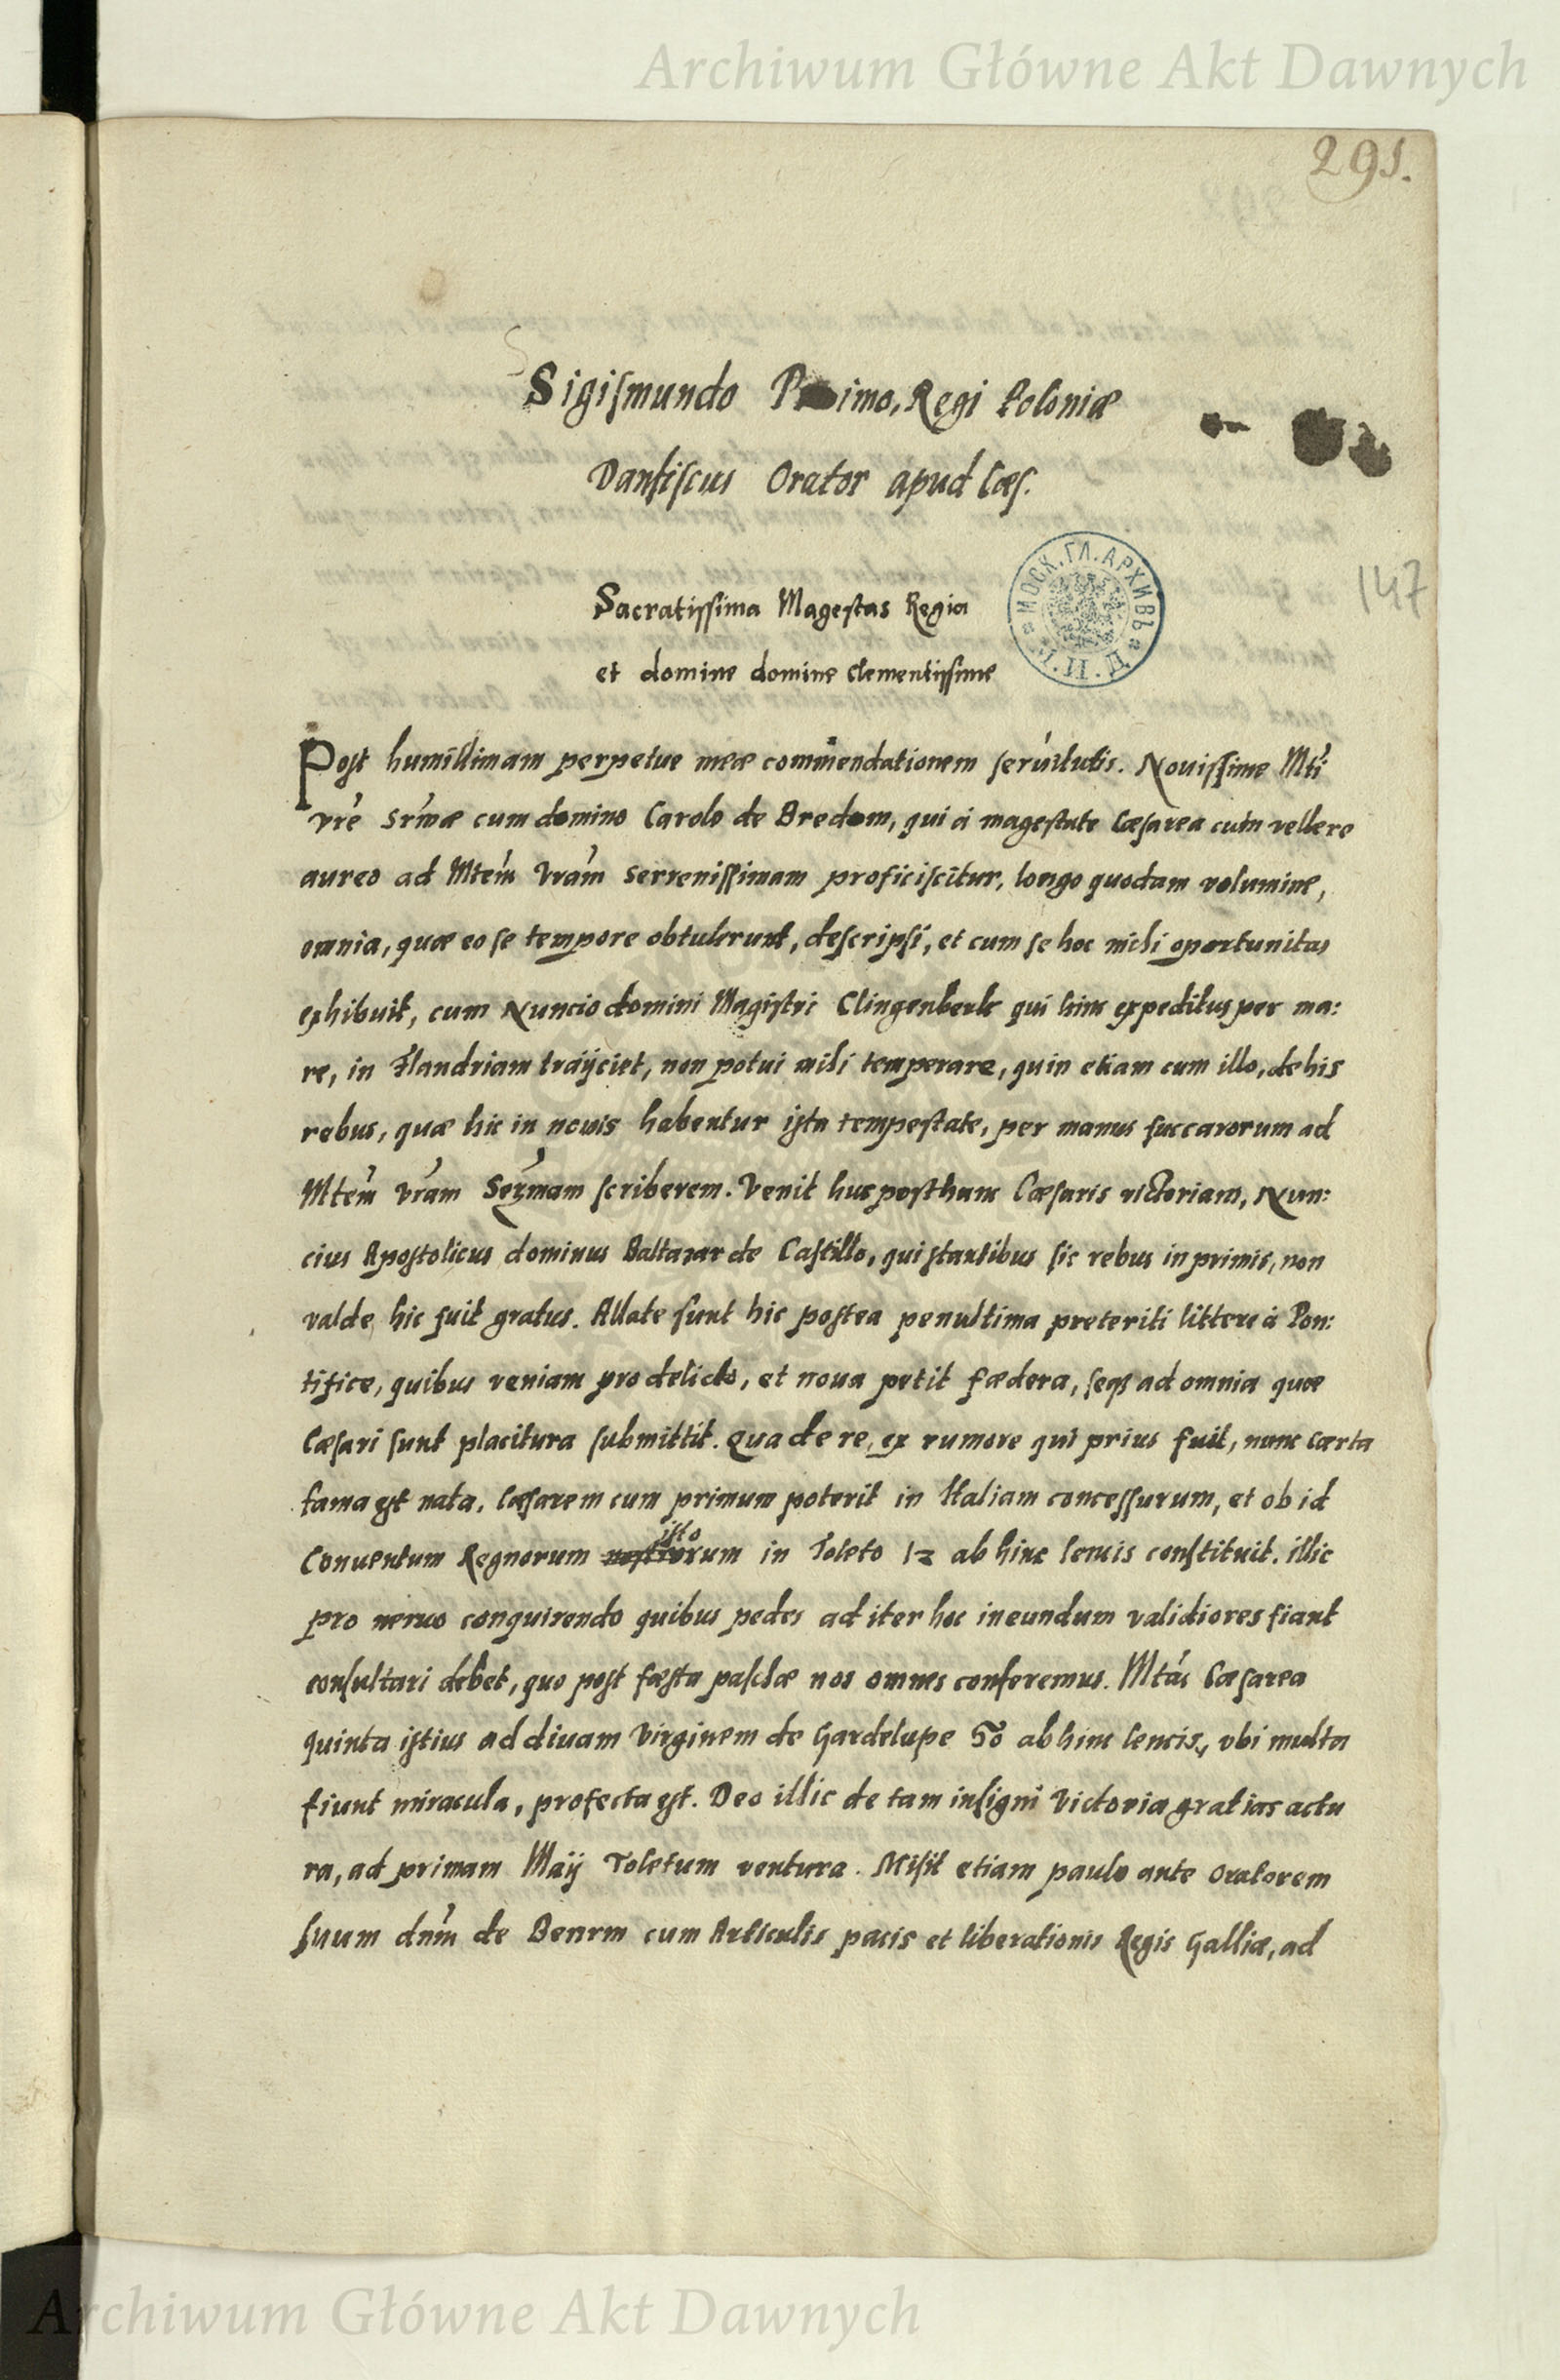 Archiwum Główne Akt Dawnych
291.
Sigismundo Primo, Regi Poloniæ
Dantiscus Orator apud Cæs.
МОСК. ГЛ. АРХИВЪ
147
Sacratissima Magestas Regia
et domine domine clementissime
Post humillimam perpetue meæ commendationem servitutis. Nouissime Mti
vre Srmæ cum domino Carolo de Bredam, qui a magestate Cæsarea cum vellere
aureo ad Mtem Vram Serrenissimam proficiscitur, longo quodam volumine,
omnia, quæ eo se tempore obtulerunt, descripsi, et cum se hoc michi oportunitas
exhibuit, cum Nuncio domini Magistri Clingenbeck qui hinc expeditus per ma:
re, in Flandriam traijciet, non potui michi temperare, quin etiam cum illo, de his
rebus, quæ hic in novis habentur ista tempestate, per manus fuccarorum ad
Mtem Vram Sermam scriberem. Venit huc post hanc Cæsaris victoriam, Nun:
cius Apostolicus dominus Baltazar de Castillo, qui stantibus sic rebus in primis, non
valde hic fuit gratus. Allate sunt hic postea penultima preteriti littere à Pon:
tifice, quibus veniam pro delicto, et noua petit fædera, seqz ad omnia quæ
Cæsari sunt placitura submittit. Qua de re, ex rumore qui prius fuit, nunc cærta
fama est nata, Cæsarem cum primum poterit in Italiam concessurum, et ob id
Conuentum Regnorum istorum in Toleto 12 ab hinc leucis constituit. illic
pro neruo conquirendo quibus pedes ad iter hoc ineundum validiores fiant
consultari debet, quo post fæsta paschæ nos omnes conferemus. Mtas Cæsarea
quinta istius ad diuam Virginem de Gardelupe 50 ab hinc leucis, vbi multa
fiunt miracula, profecta est. Deo illic de tam insigni Victoria gratias actu
ra, ad primam Maij Toletum ventura. Misit etiam paulo ante Oratorem
suum dnm de Benrm cum Articulis pacis et liberationis Regis Galliæ, ad
Archiwum Główne Akt Dawnych